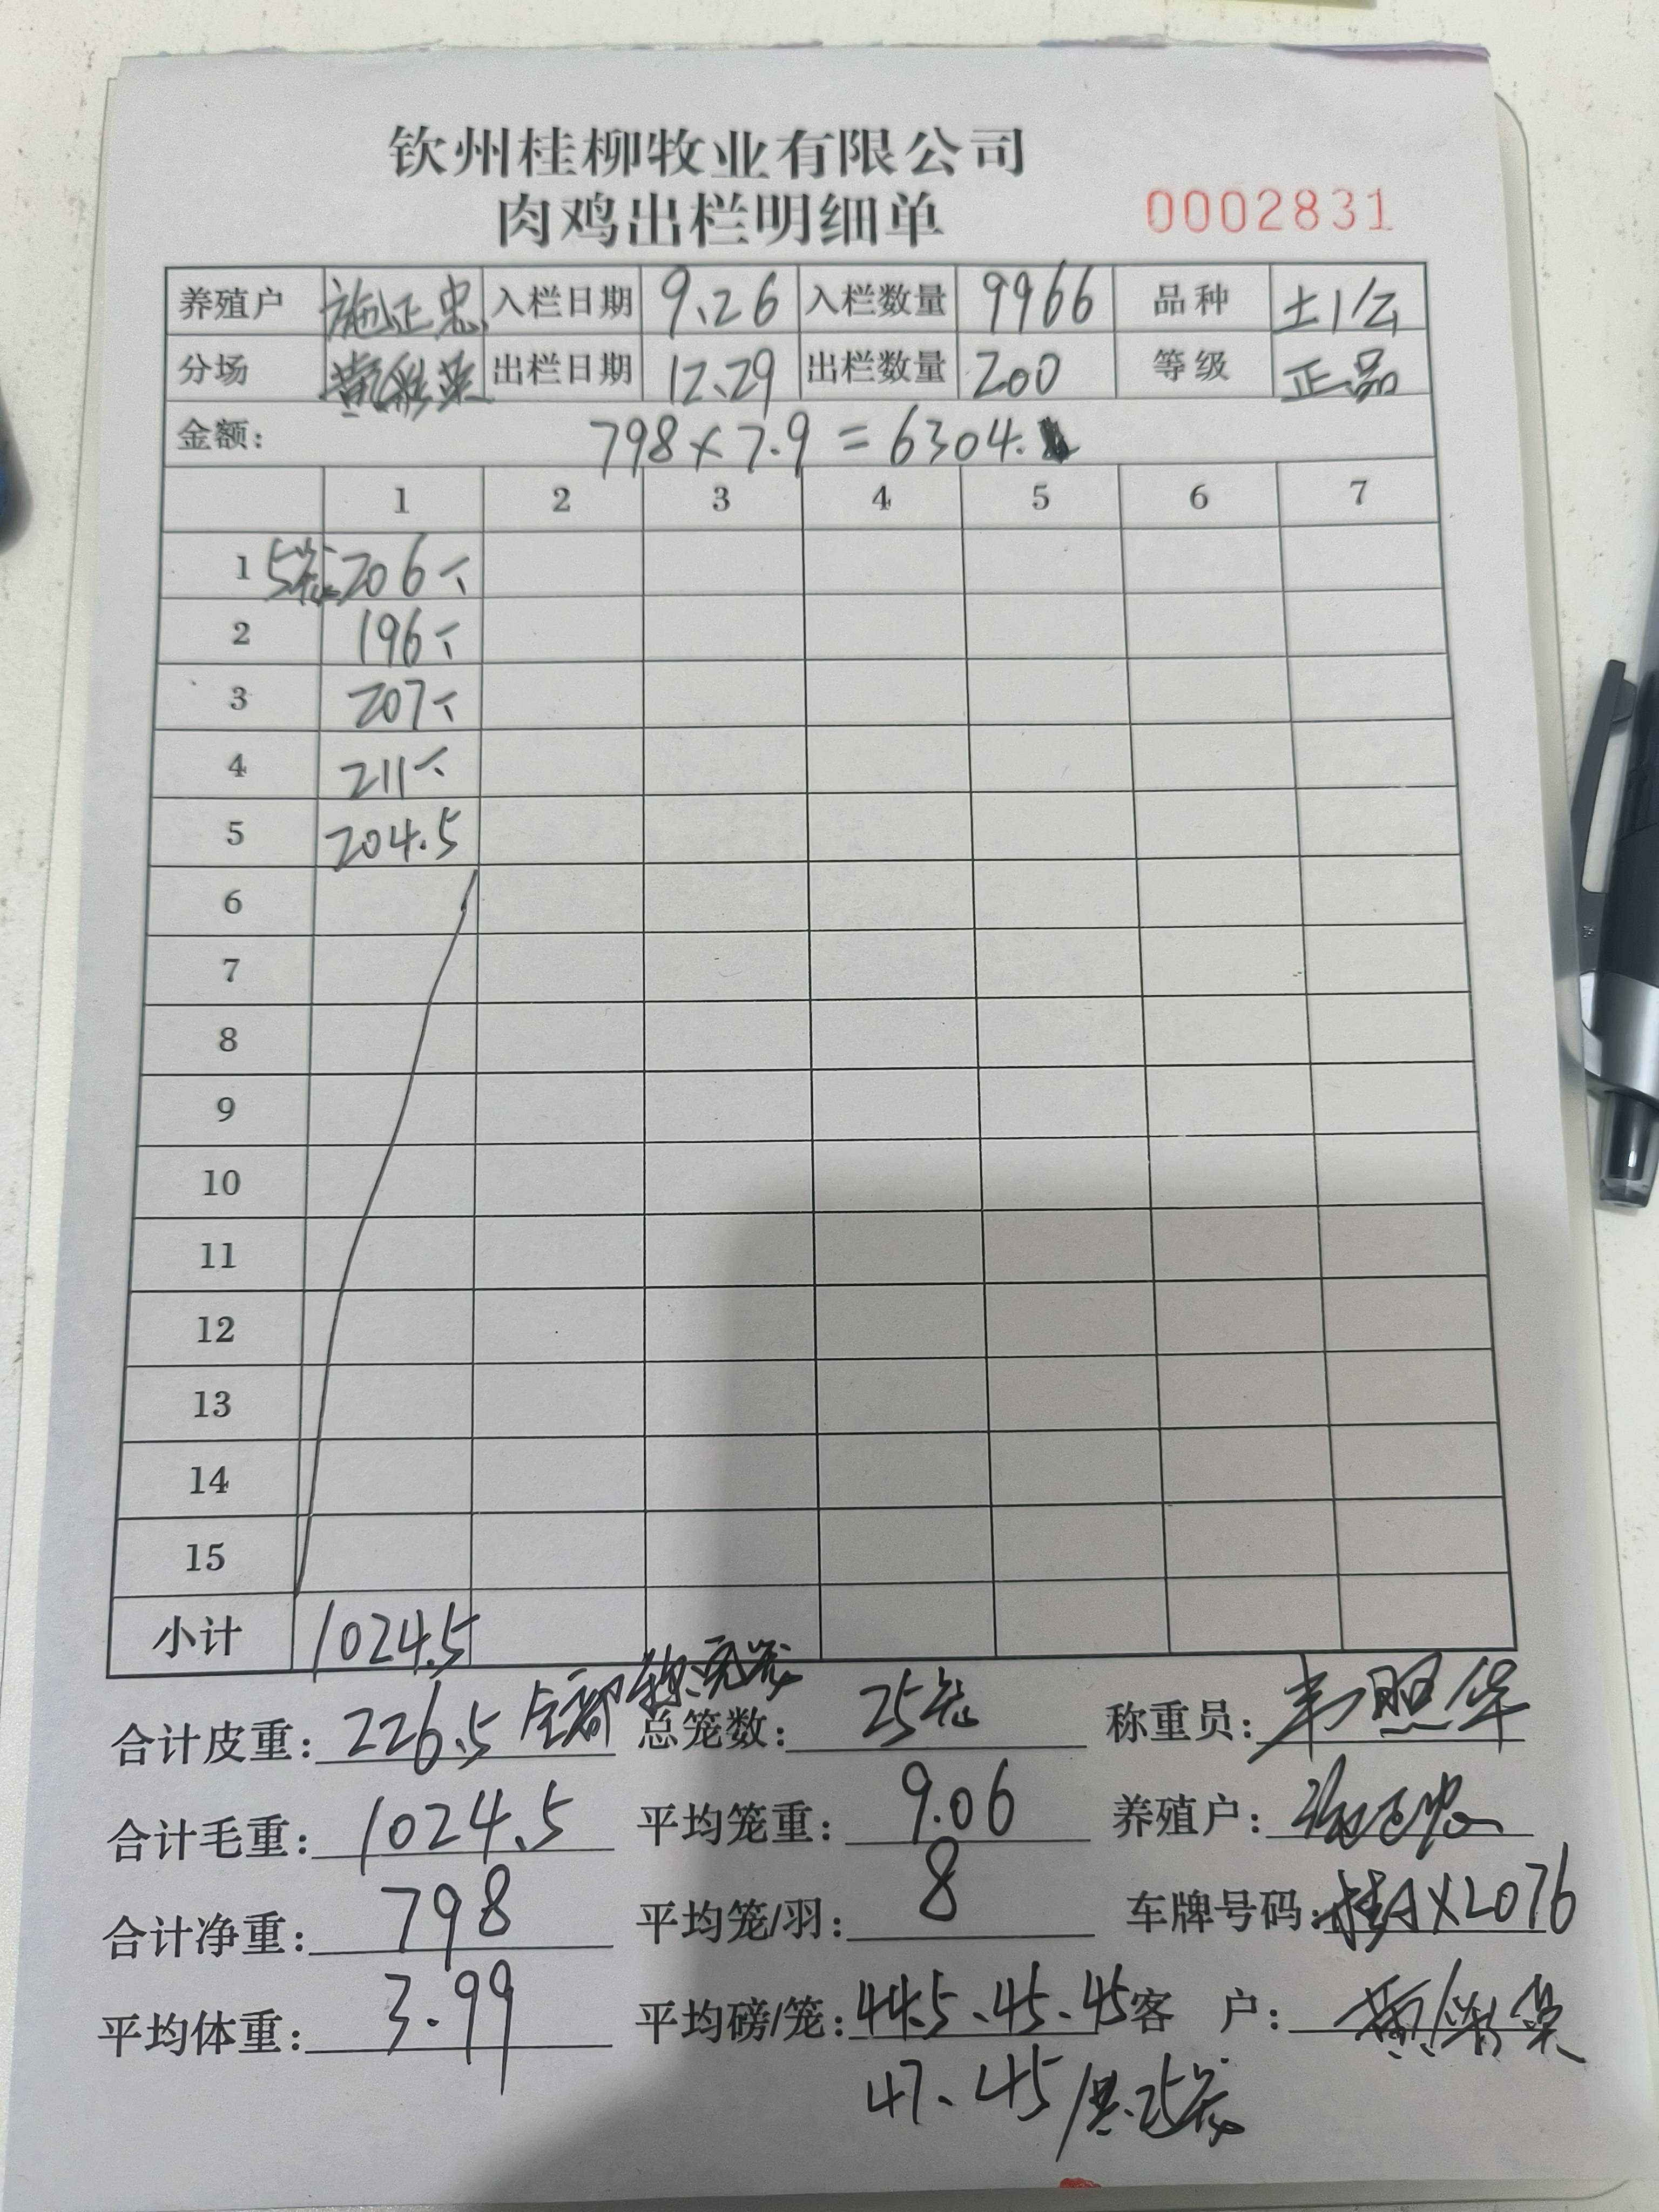 钦州桂柳牧业有限公司
肉鸡出栏明细单 0002831
养殖户 施正忠 入栏日期 9.26 入栏数量 9966 品种 土1/公
分场 黄彩荣 出栏日期 12.29 出栏数量 200 等级 正品
金额: 798×7.9=6304.
1 2 3 4 5 6 7
1 5笼 206个
2 196个
3 207个
4 211个
5 204.5
6
7
8
9
10
11
12
13
14
15
小计 1024.5
合计皮重: 226.5 全部 总笼数: 25笼 称重员: 韦照华
合计毛重: 1024.5 平均笼重: 9.06 养殖户:
合计净重: 798 平均笼/羽: 8 车牌号码: 桂AX2076
平均体重: 3.99 平均磅/笼: 44.5、45、45 客户: 黄彩荣
47、45/共25笼